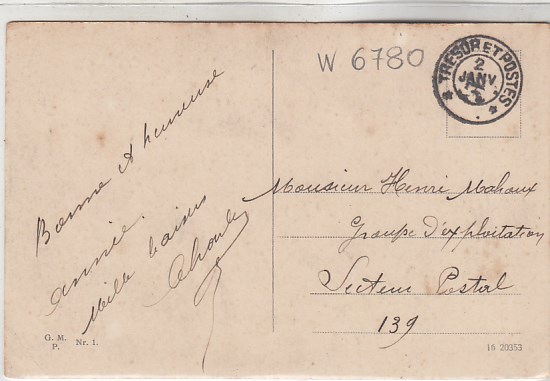 W 6780
TRESOR ET POSTES
2
JANV
Bonne et heureuse
année.
Mille baisers
Monsieur Henri Mahoux
Groupe d'exploitation
Secteur Postal
139
G. M.
P. Nr. 1.
16 20353